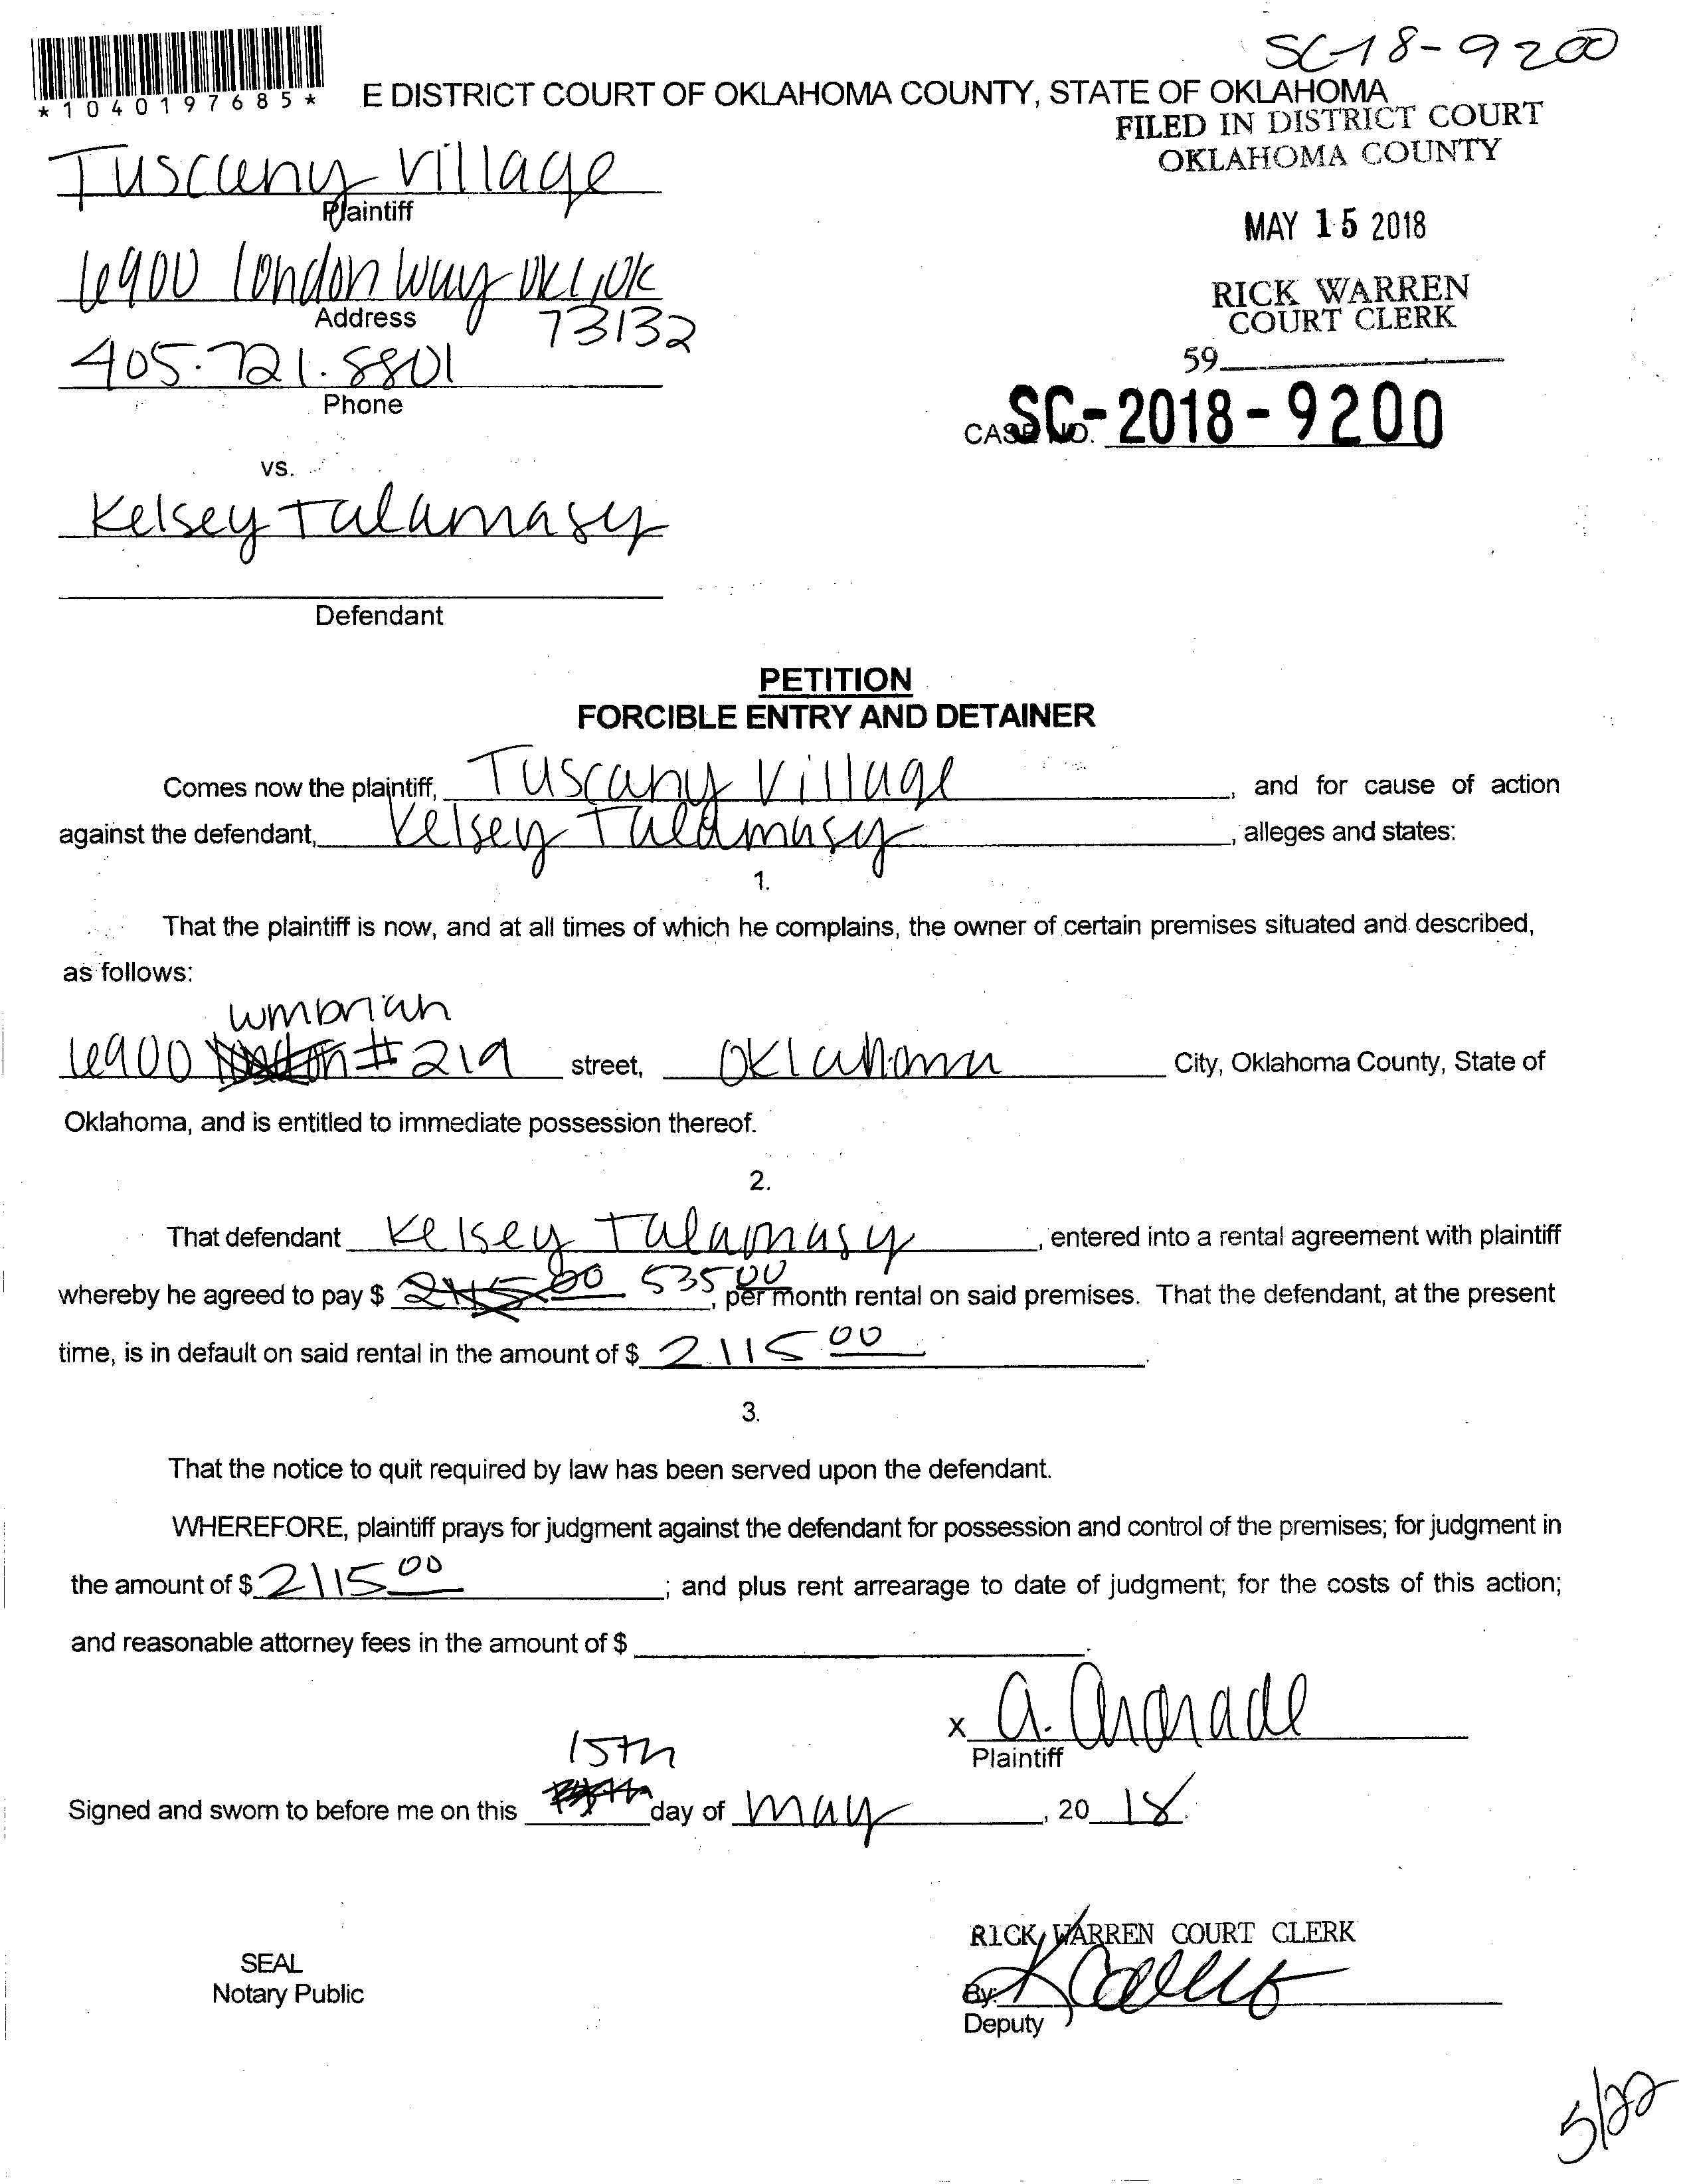 SC-18-9200
*1040197685*
E DISTRICT COURT OF OKLAHOMA COUNTY, STATE OF OKLAHOMA
FILED IN DISTRICT COURT
OKLAHOMA COUNTY
Tuscany Village
Plaintiff
MAY 15 2018
6900 London Way OKC, OK
Address
73132
RICK WARREN
COURT CLERK
405.721.8801
Phone
59
CASE NO. SC-2018-9200
vs.
Kelsey Talamasy
Defendant
PETITION
FORCIBLE ENTRY AND DETAINER
Comes now the plaintiff, Tuscany Village, and for cause of action
against the defendant, Kelsey Talamasy, alleges and states:
1.
That the plaintiff is now, and at all times of which he complains, the owner of certain premises situated and described,
as follows:
umbrian
6900 #219 street, Oklahoma City, Oklahoma County, State of
Oklahoma, and is entitled to immediate possession thereof.
2.
That defendant Kelsey Talamasy, entered into a rental agreement with plaintiff
whereby he agreed to pay $ 535.00, per month rental on said premises. That the defendant, at the present
time, is in default on said rental in the amount of $ 2115.00.
3.
That the notice to quit required by law has been served upon the defendant.
WHEREFORE, plaintiff prays for judgment against the defendant for possession and control of the premises; for judgment in
the amount of $ 2115.00; and plus rent arrearage to date of judgment; for the costs of this action;
and reasonable attorney fees in the amount of $ .
x A. Andrade
Plaintiff
15th
Signed and sworn to before me on this day of May, 20 18.
RICK WARREN COURT CLERK
SEAL
Notary Public
By:
Deputy
5/22